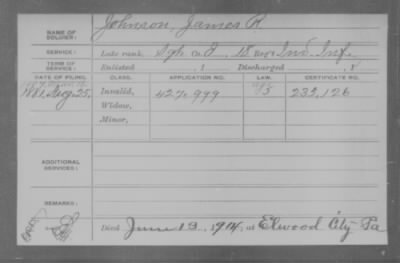 NAME OF SOLDIER: Johnson, James R.
SERVICE: Late rank, Sgt. Co. I, Reg't Ind. Inf.
TERM OF SERVICE: Enlisted , 1 Discharged , 1
DATE OF FILING. CLASS. APPLICATION NO. LAW. CERTIFICATE NO.
1881, Aug. 25, Invalid, 427,999 233,126
Widow,
Minor,
ADDITIONAL SERVICES:
REMARKS:
Died June 13, 1914, at Elwood City Pa